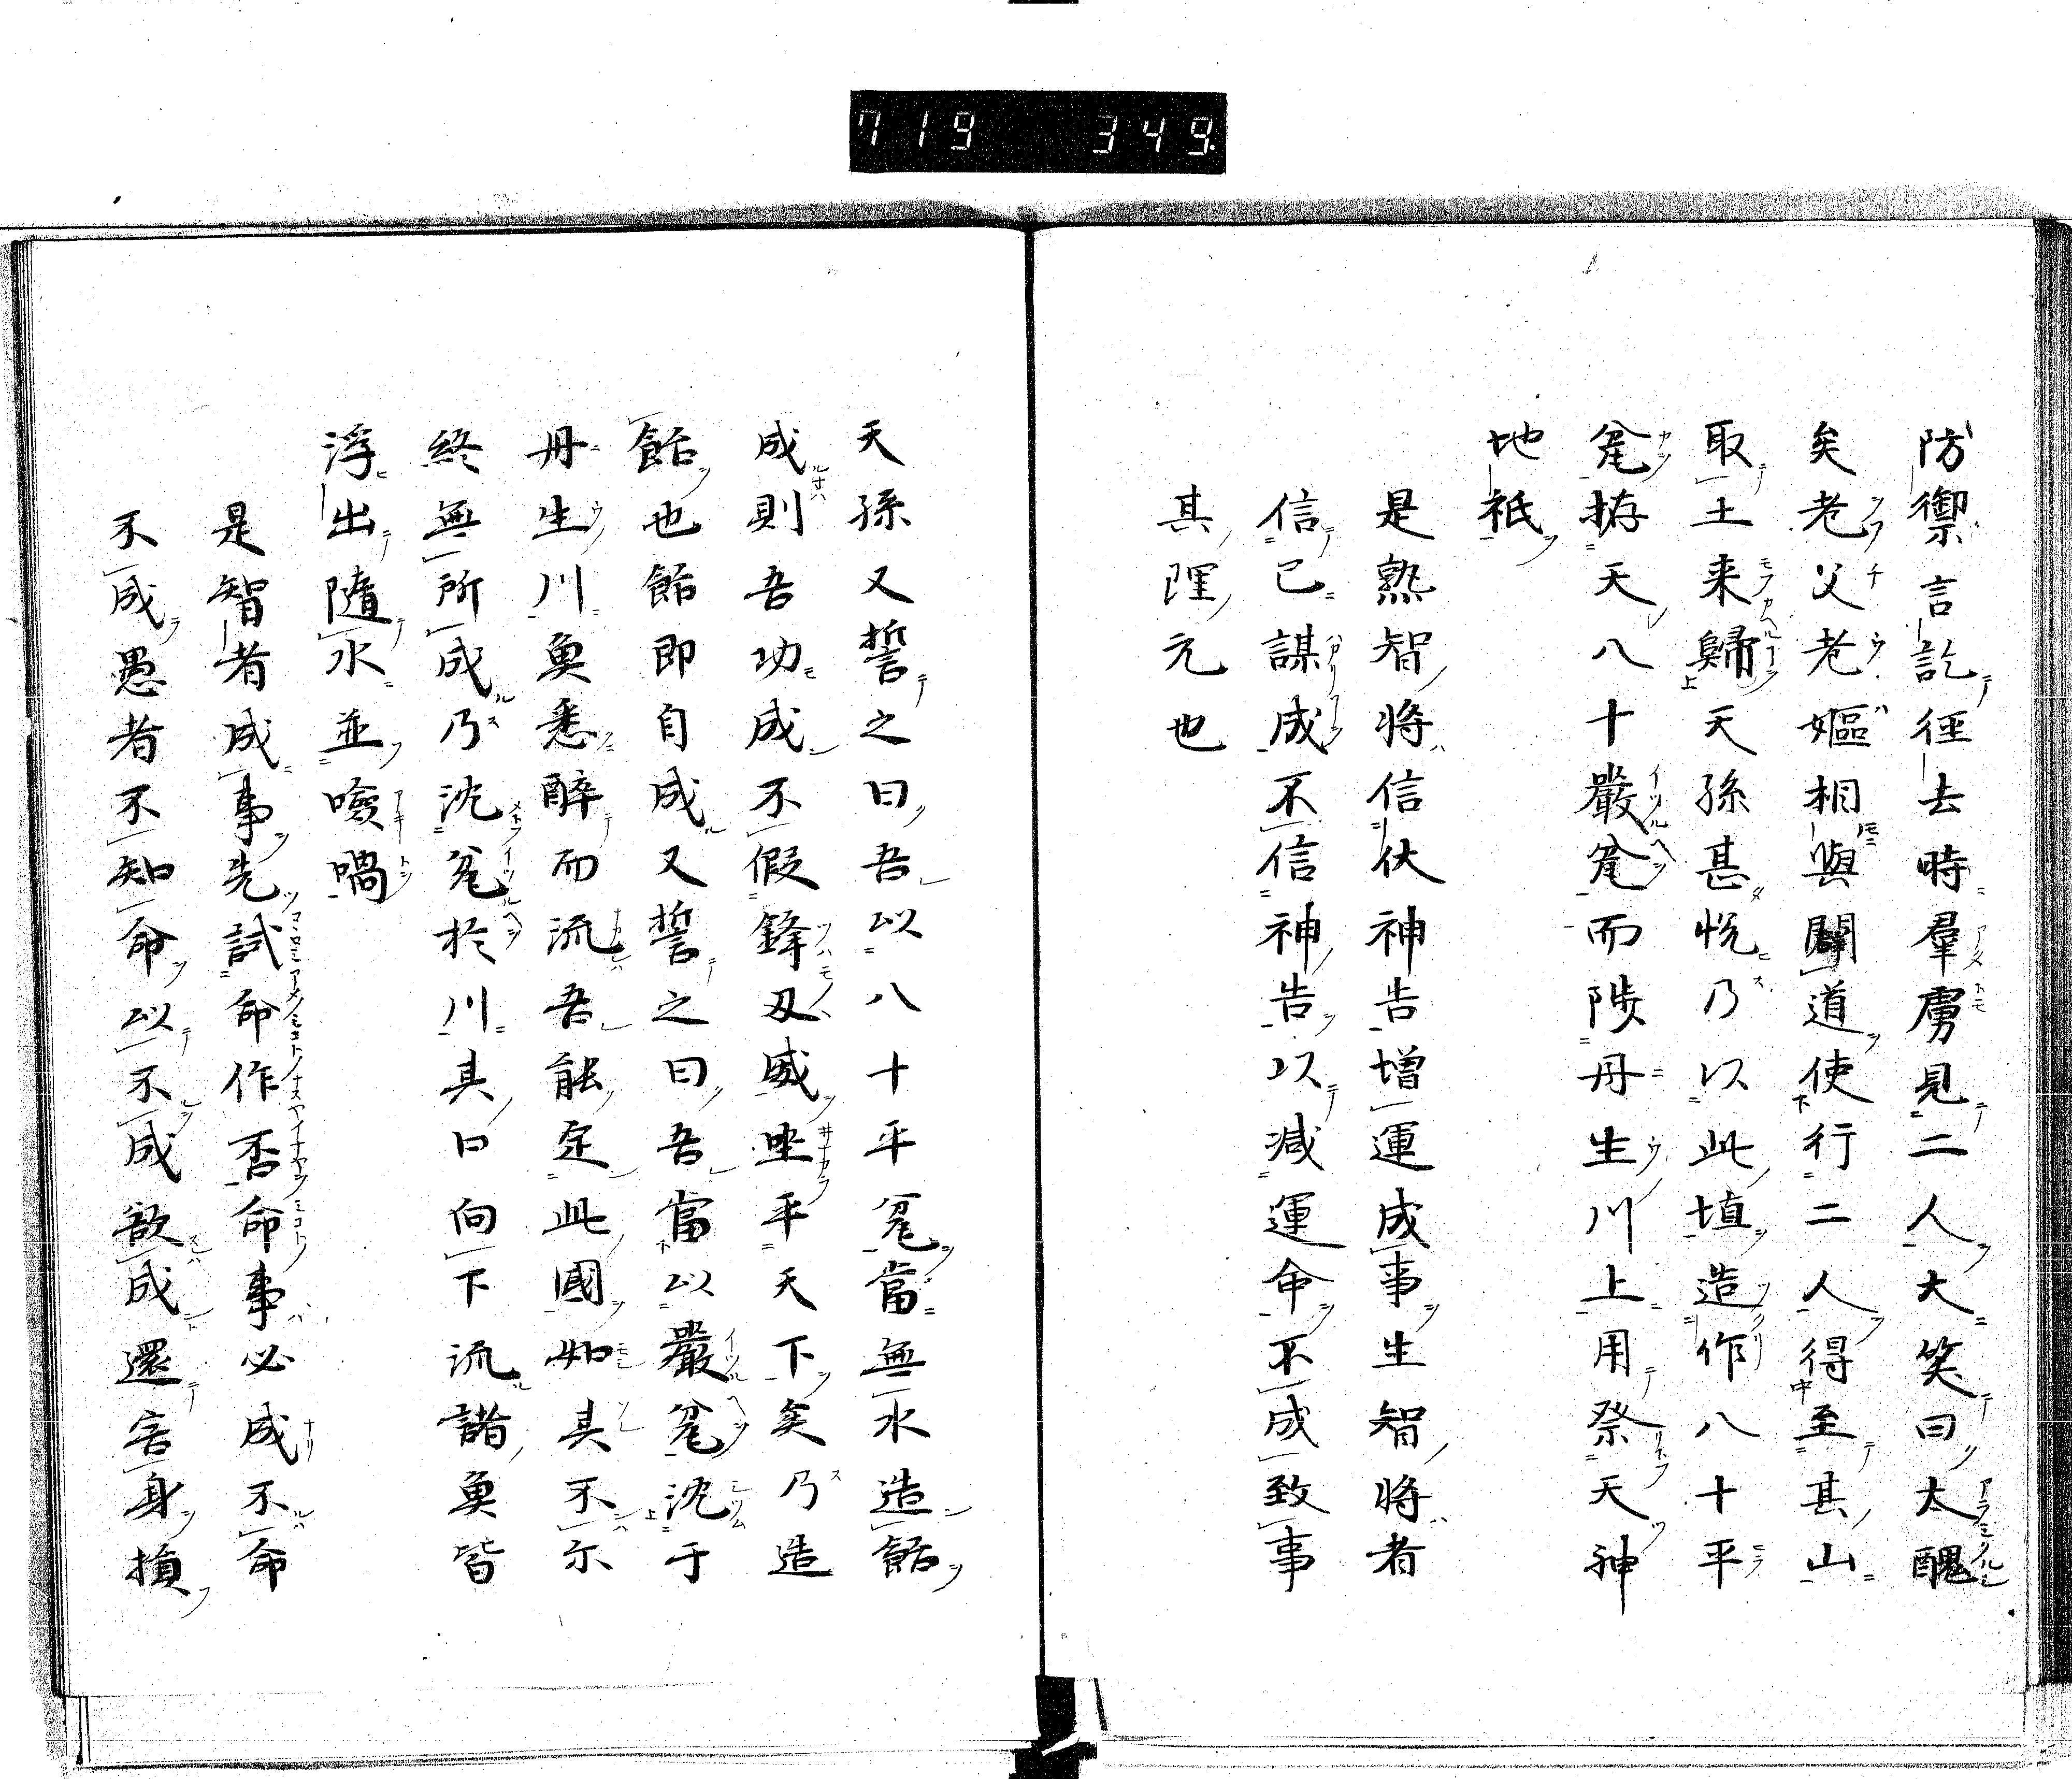 719 349.
防禦言訖徑去時羣虜見二人大笑曰太醜
矣老父老嫗相與闢道使行二人得至其山
取土来歸天孫甚悅乃以此埴造作八十平
瓮拵天八十嚴瓮而陟丹生川上用祭天神
地祇
是熟智将信伏神告増運成事生智将者
信己謀成不信神告以減運命不成致事
其理元也
天孫又誓之曰吾以八十平瓮當無水造飴
成則吾功成不假鋒刄威坐平天下矣乃造
飴也飴即自成又誓之曰吾當以嚴瓮沈于
丹生川魚悉醉而流吾能定此國如其不尓
終無所成乃沈瓮於川其口向下流諸魚皆
浮出隨水並噞喁
是智者成事先試命作否命事必成不命
不成愚者不知命以不成欲成還害身損